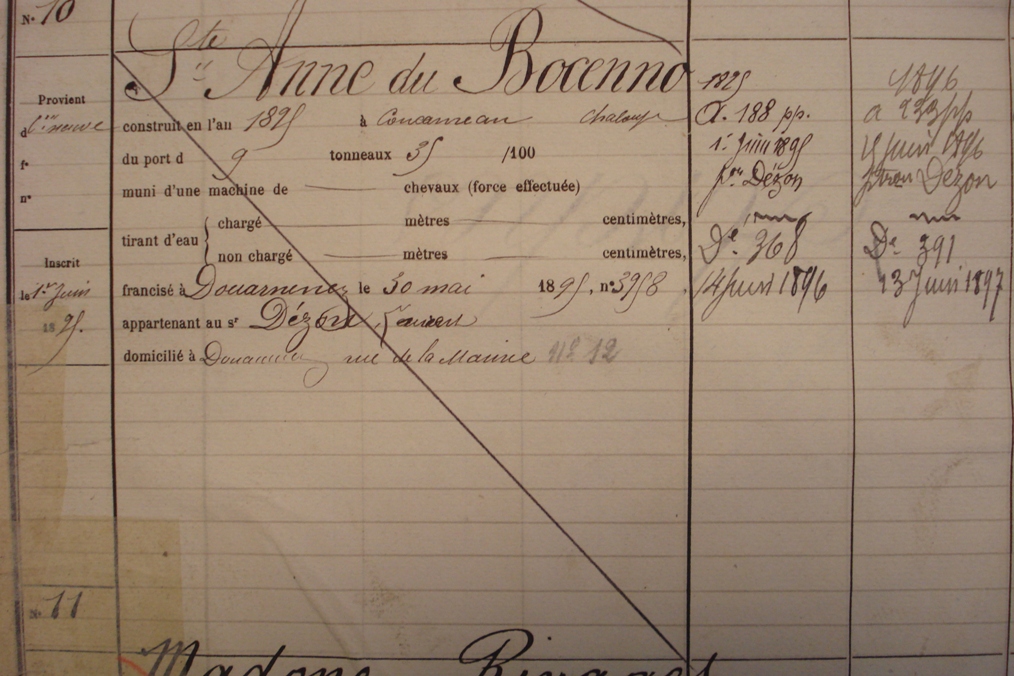 N° 10
Ste Anne du Bocenno
Provient
d construit en l'an 1895 à Concarneau chaloupe
f° du port d 9 tonneaux 35 /100
n° muni d'une machine de chevaux (force effectuée)
tirant d'eau { chargé mètres centimètres,
non chargé mètres centimètres,
Inscrit
le 1er Juin 1895.
francisé à Douarnenez le 30 mai 1895, n° 3958
appartenant au sr Dézon
domicilié à Douarnenez rue de la Marine N° 12
1895
a. 188 pp.
1er Juin 1895
pon Dézon
De 368
14 Juin 1896
1896
a 233 pp
15 Juin 1896
patron Dézon
De 391
13 Juin 1897
N° 11
Madone